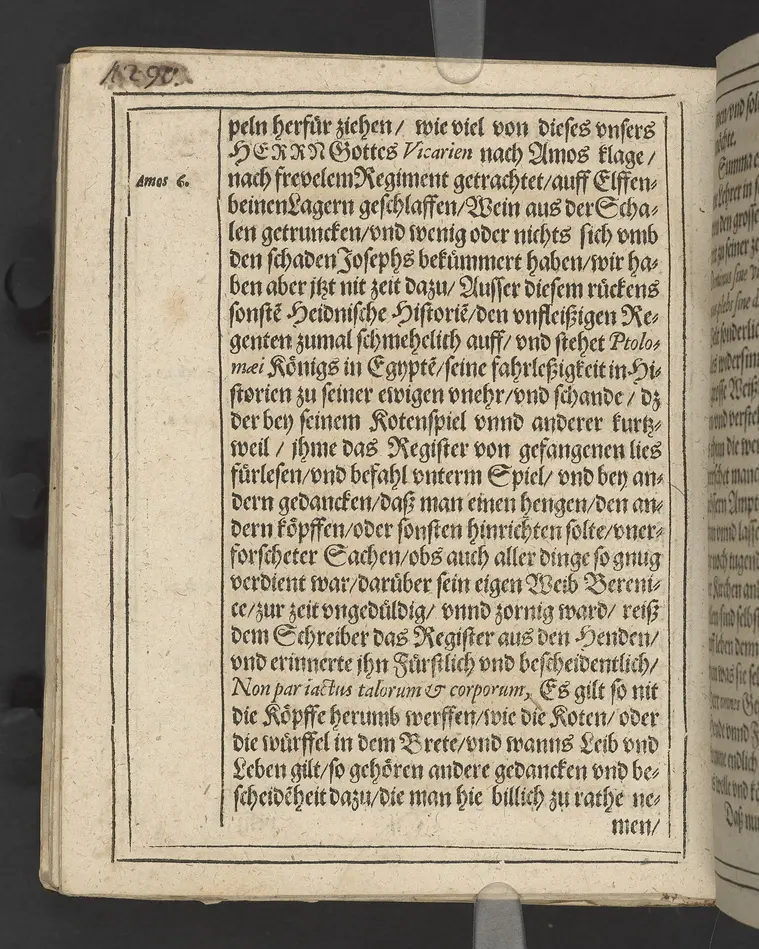 1290.
peln herfür ziehen/ wie viel von dieses vnsers
HERRN Gottes Vicarien nach Amos klage/
Amos 6.
nach frevelem Regiment getrachtet/auff Elffen-
beinen Lagern geschlaffen/Wein aus der Scha-
len getruncken/vnd wenig oder nichts sich vmb
den schaden Josephs bekümmert haben/wir ha-
ben aber jtzt nit zeit dazu/ Ausser diesem rückens
sonstē Heidnische Historiē/den vnfleißigen Re-
genten zumal schmehelich auff/ vnd stehet Ptolo-
mæi Königs in Egyptē/seine fahrleßigkeit in Hi-
storien zu seiner ewigen vnehr/vnd schande/ dz
der bey seinem Kotenspiel vnnd anderer kurtz-
weil / jhme das Register von gefangenen lies
fürlesen/vnd befahl vnterm Spiel/ vnd bey an-
dern gedancken/daß man einen hengen/den an-
dern köpffen/oder sonsten hinrichten solte/vner-
forscheter Sachen/obs auch aller dinge so gnug
verdient war/darüber sein eigen Weib Bereni-
ce/zur zeit vngedüldig/ vnnd zornig ward/ reiß
dem Schreiber das Register aus den Henden/
vnd erinnerte jhn Fürstlich vnd bescheidentlich/
Non par iactus talorum & corporum, Es gilt so nit
die Köpffe herumb werffen/wie die Koten/ oder
die würffel in dem Brete/vnd wanns Leib vnd
Leben gilt/so gehören andere gedancken vnd be-
scheidēheit dazu/die man hie billich zu rathe ne-
men/